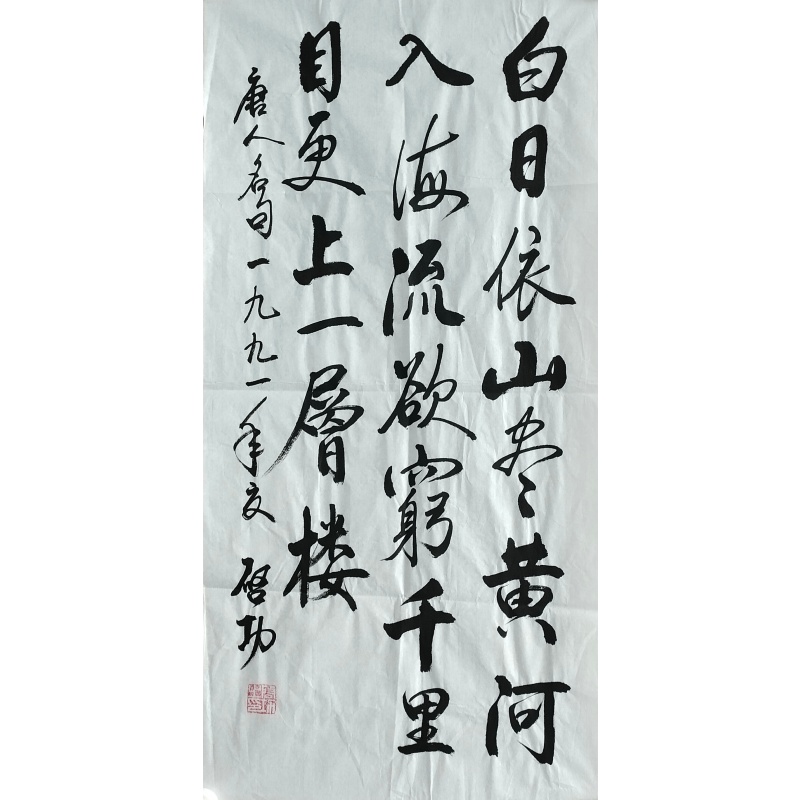 白日依山尽黄河
入海流欲窮千里
目更上一層楼
唐人名句一九九一年夏 啓功